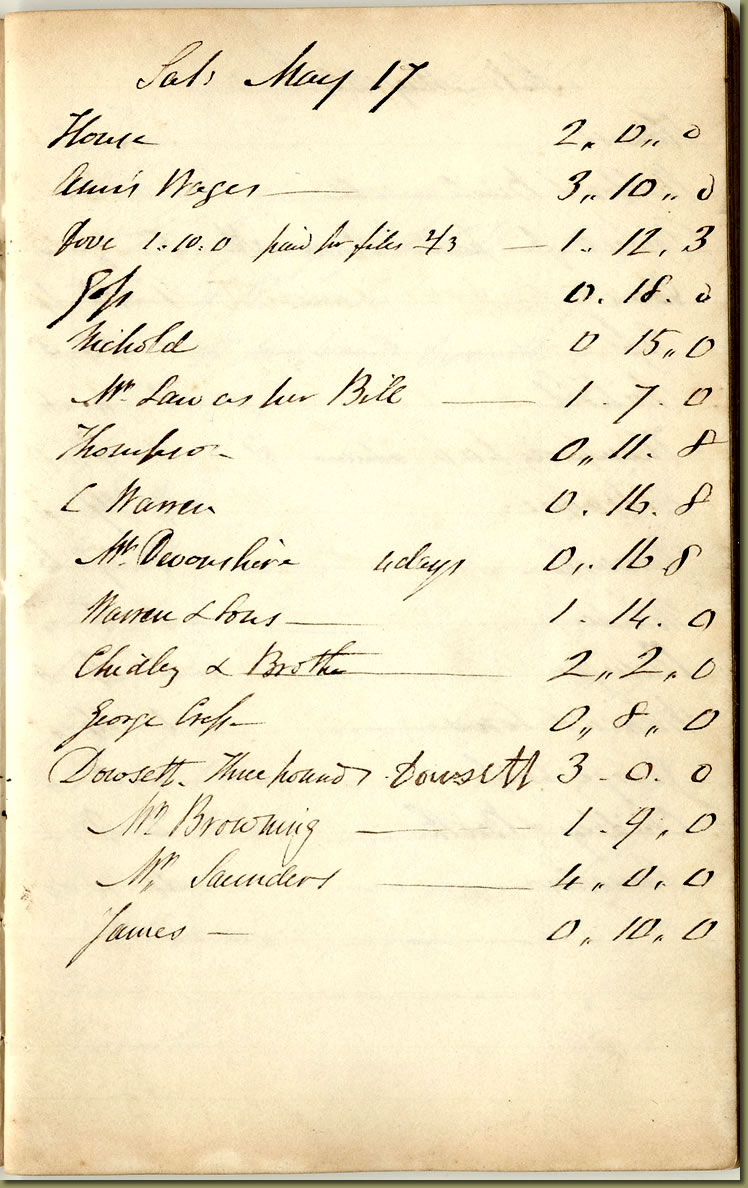 Sat. May 17
House 2,, 0,, 0
Ann's Wages — 3,, 10,, 0
Dove 1.10.0 paid for files 2/3 — 1. 12. 3
Goss 0. 18. 0
Nichold 0 15,, 0
Mrs Law as her Bill — 1. 7. 0
Thompson 0,, 11. 8
C Warren 0. 16. 8
Mr. Devonshire 4 days 0,. 16 8
Warren & Sons — 1. 14. 0
Chidley & Brother 2,, 2,, 0
George Cross 0,, 8,, 0
Dowsett. Three pounds. Dowsett 3 - 0. 0
Mr Browning — 1. 9. 0
Mrs Saunders — 4,, 0. 0
James — 0,, 10,, 0